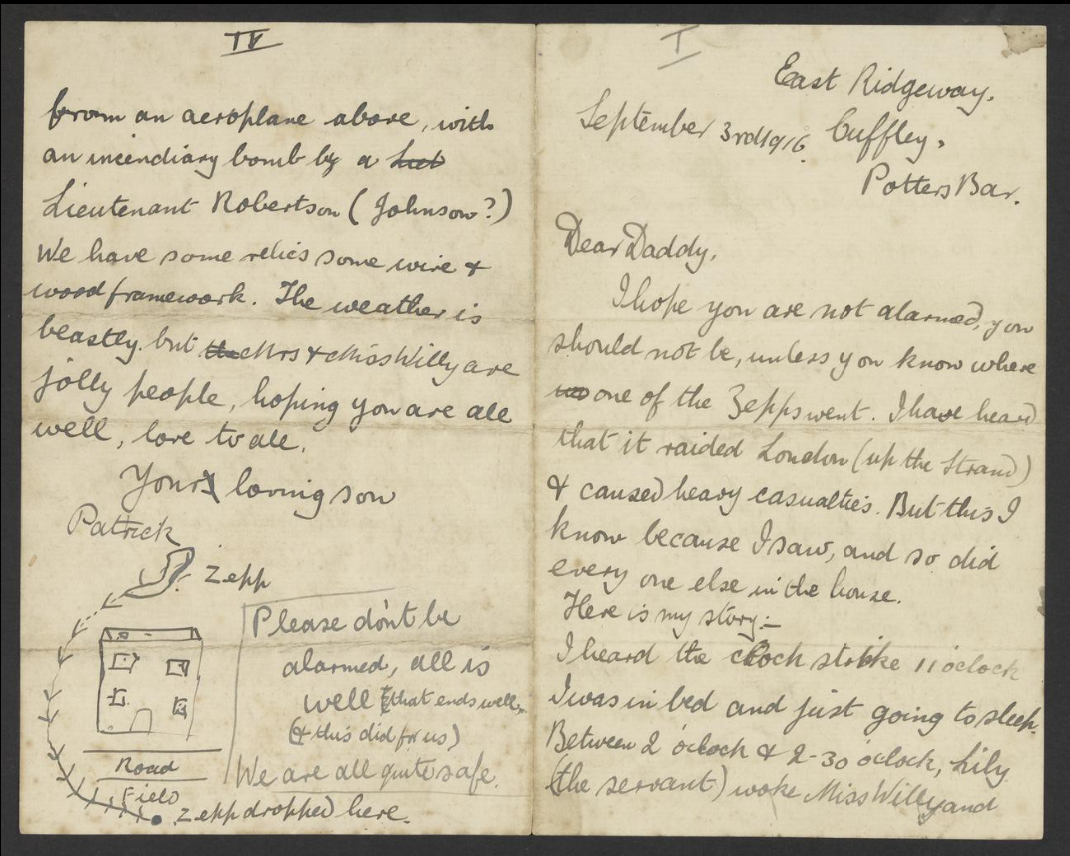 I
East Ridgeway.
September 3rd 1916. Cuffley,
Potters Bar.
Dear Daddy,
I hope you are not alarmed, you
should not be, unless you know where
one of the Zepps went. I have heard
that it raided London (up the Strand)
& caused heavy casualties. But this I
know because I saw, and so did
every one else in the house.
Here is my story:-
I heard the clock strike 11 o'clock
I was in bed and just going to sleep.
Between 2 o'clock & 2-30 o'clock, Lily
(the servant) woke Miss Willy and
IV
from an aeroplane above, with
an incendiary bomb by a
Lieutenant Robertson (Johnson?)
We have some relics some wire &
wood framework. The weather is
beastly. but the Mrs & Miss Willy are
jolly people, hoping you are all
well, love to all.
Yours loving son
Patrick
Zepp
Please don't be
alarmed, all is
well (that ends well,
(& this did for us)
We are all quite safe.
Road
Field
Zepp dropped here.